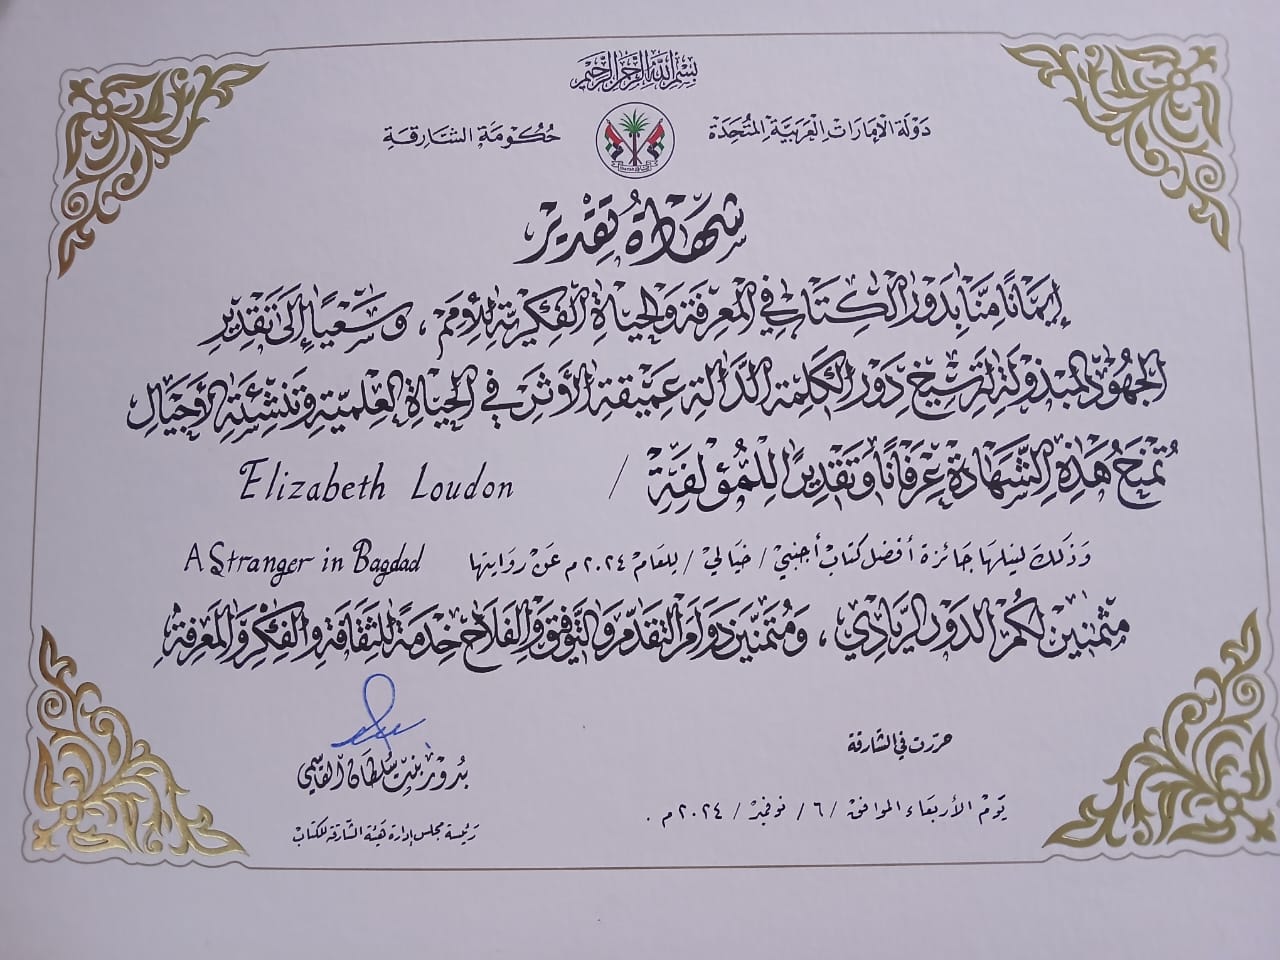 بِسْمِ اللَّهِ الرَّحْمَنِ الرَّحِيمِ
دَوْلَة الإِمَارَات العَرَبِيَّة المُتَّحَدَة
حُكُومَة الشَّارقَة
شَهَادَةُ تَقْدِير
إِيمَانًا مِنَّا بِدَوْرِ الكِتَابِ فِي المَعْرِفَةِ وَالحَيَاةِ الفِكْرِيَّةِ لِلأُمَمِ ، وَسَعْيًا إِلَى تَقْدِيرِ
الجُهُودِ المَبْذُولَةِ لِتَرْسِيخِ دَوْرِ الكَلِمَةِ الدَّالَّةِ عَمِيقَةِ الأَثَرِ فِي الحَيَاةِ العِلْمِيَّةِ وَتَنْشِئَةِ الأَجْيَالِ
تُمْنَحُ هَذِهِ الشَّهَادَةُ عِرْفَانًا وَتَقْدِيرًا لِلْمُؤَلِّفَة / Elizabeth Loudon
وَذَلكَ لنيلهَا جَائزَة أفضل كتَاب أجنبي / خيَالي / للعَام ٢٠٢٤م عَنْ روَايتهَا A Stranger in Bagdad
مثمنين لكُم الدَوْر الرِّيَادِي ، وَمُتَمَنِّينَ دَوَامَ التَقَدُّمِ وَالتَّوْفِيقِ وَالفَلَاح خِدْمَةً لِلثَقَافَةِ وَالفِكْرِ وَالمَعْرِفَةِ
حررت في الشارقة
يَوْم الأربعَاء الموافق / ٦ / نوفمبر / ٢٠٢٤م .
بُدُور بنت سُلطَان القَاسمي
رَئيسة مجلس إدارة هَيئة الشَّارقة للكتَاب